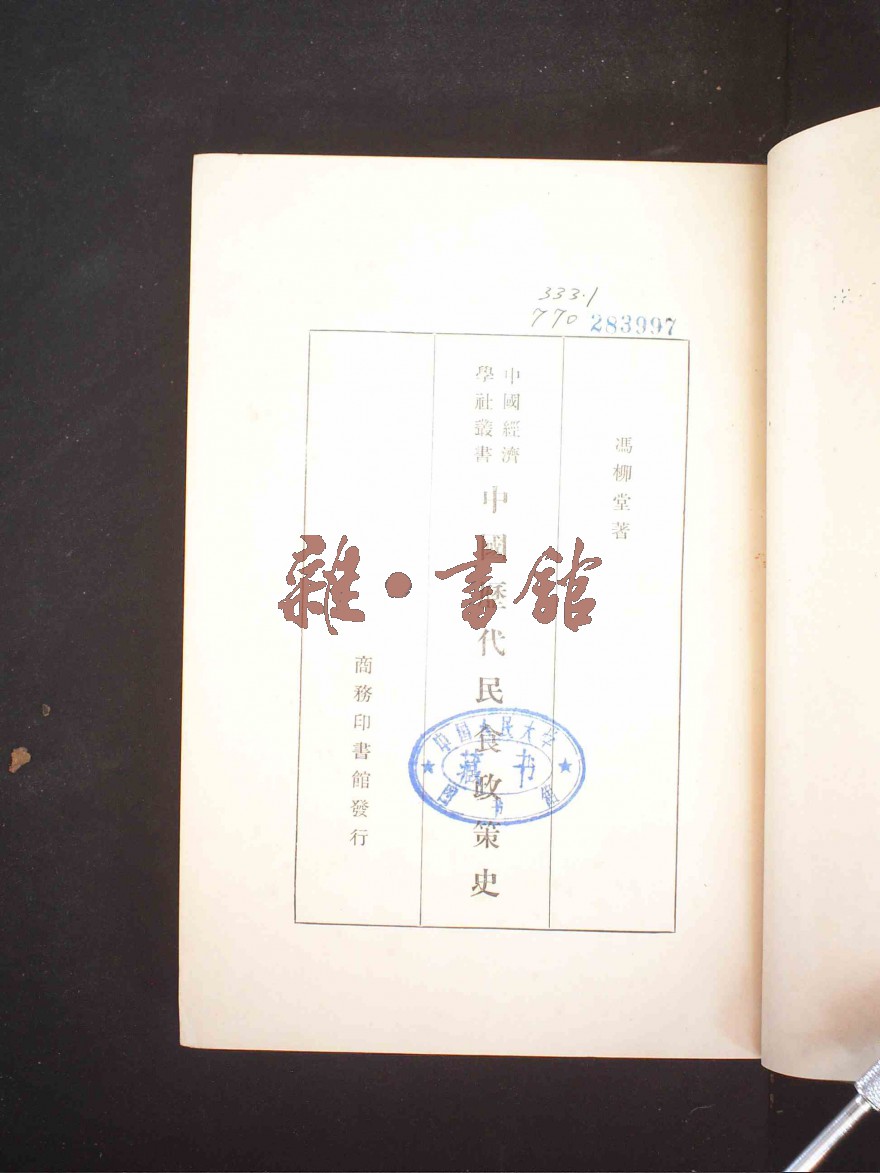 333.1
770 283997
馮柳堂著
中國經濟
學社叢書
中國歷代民食政策史
商務印書館發行
雜·書館
中国人民大学
藏书
图书馆